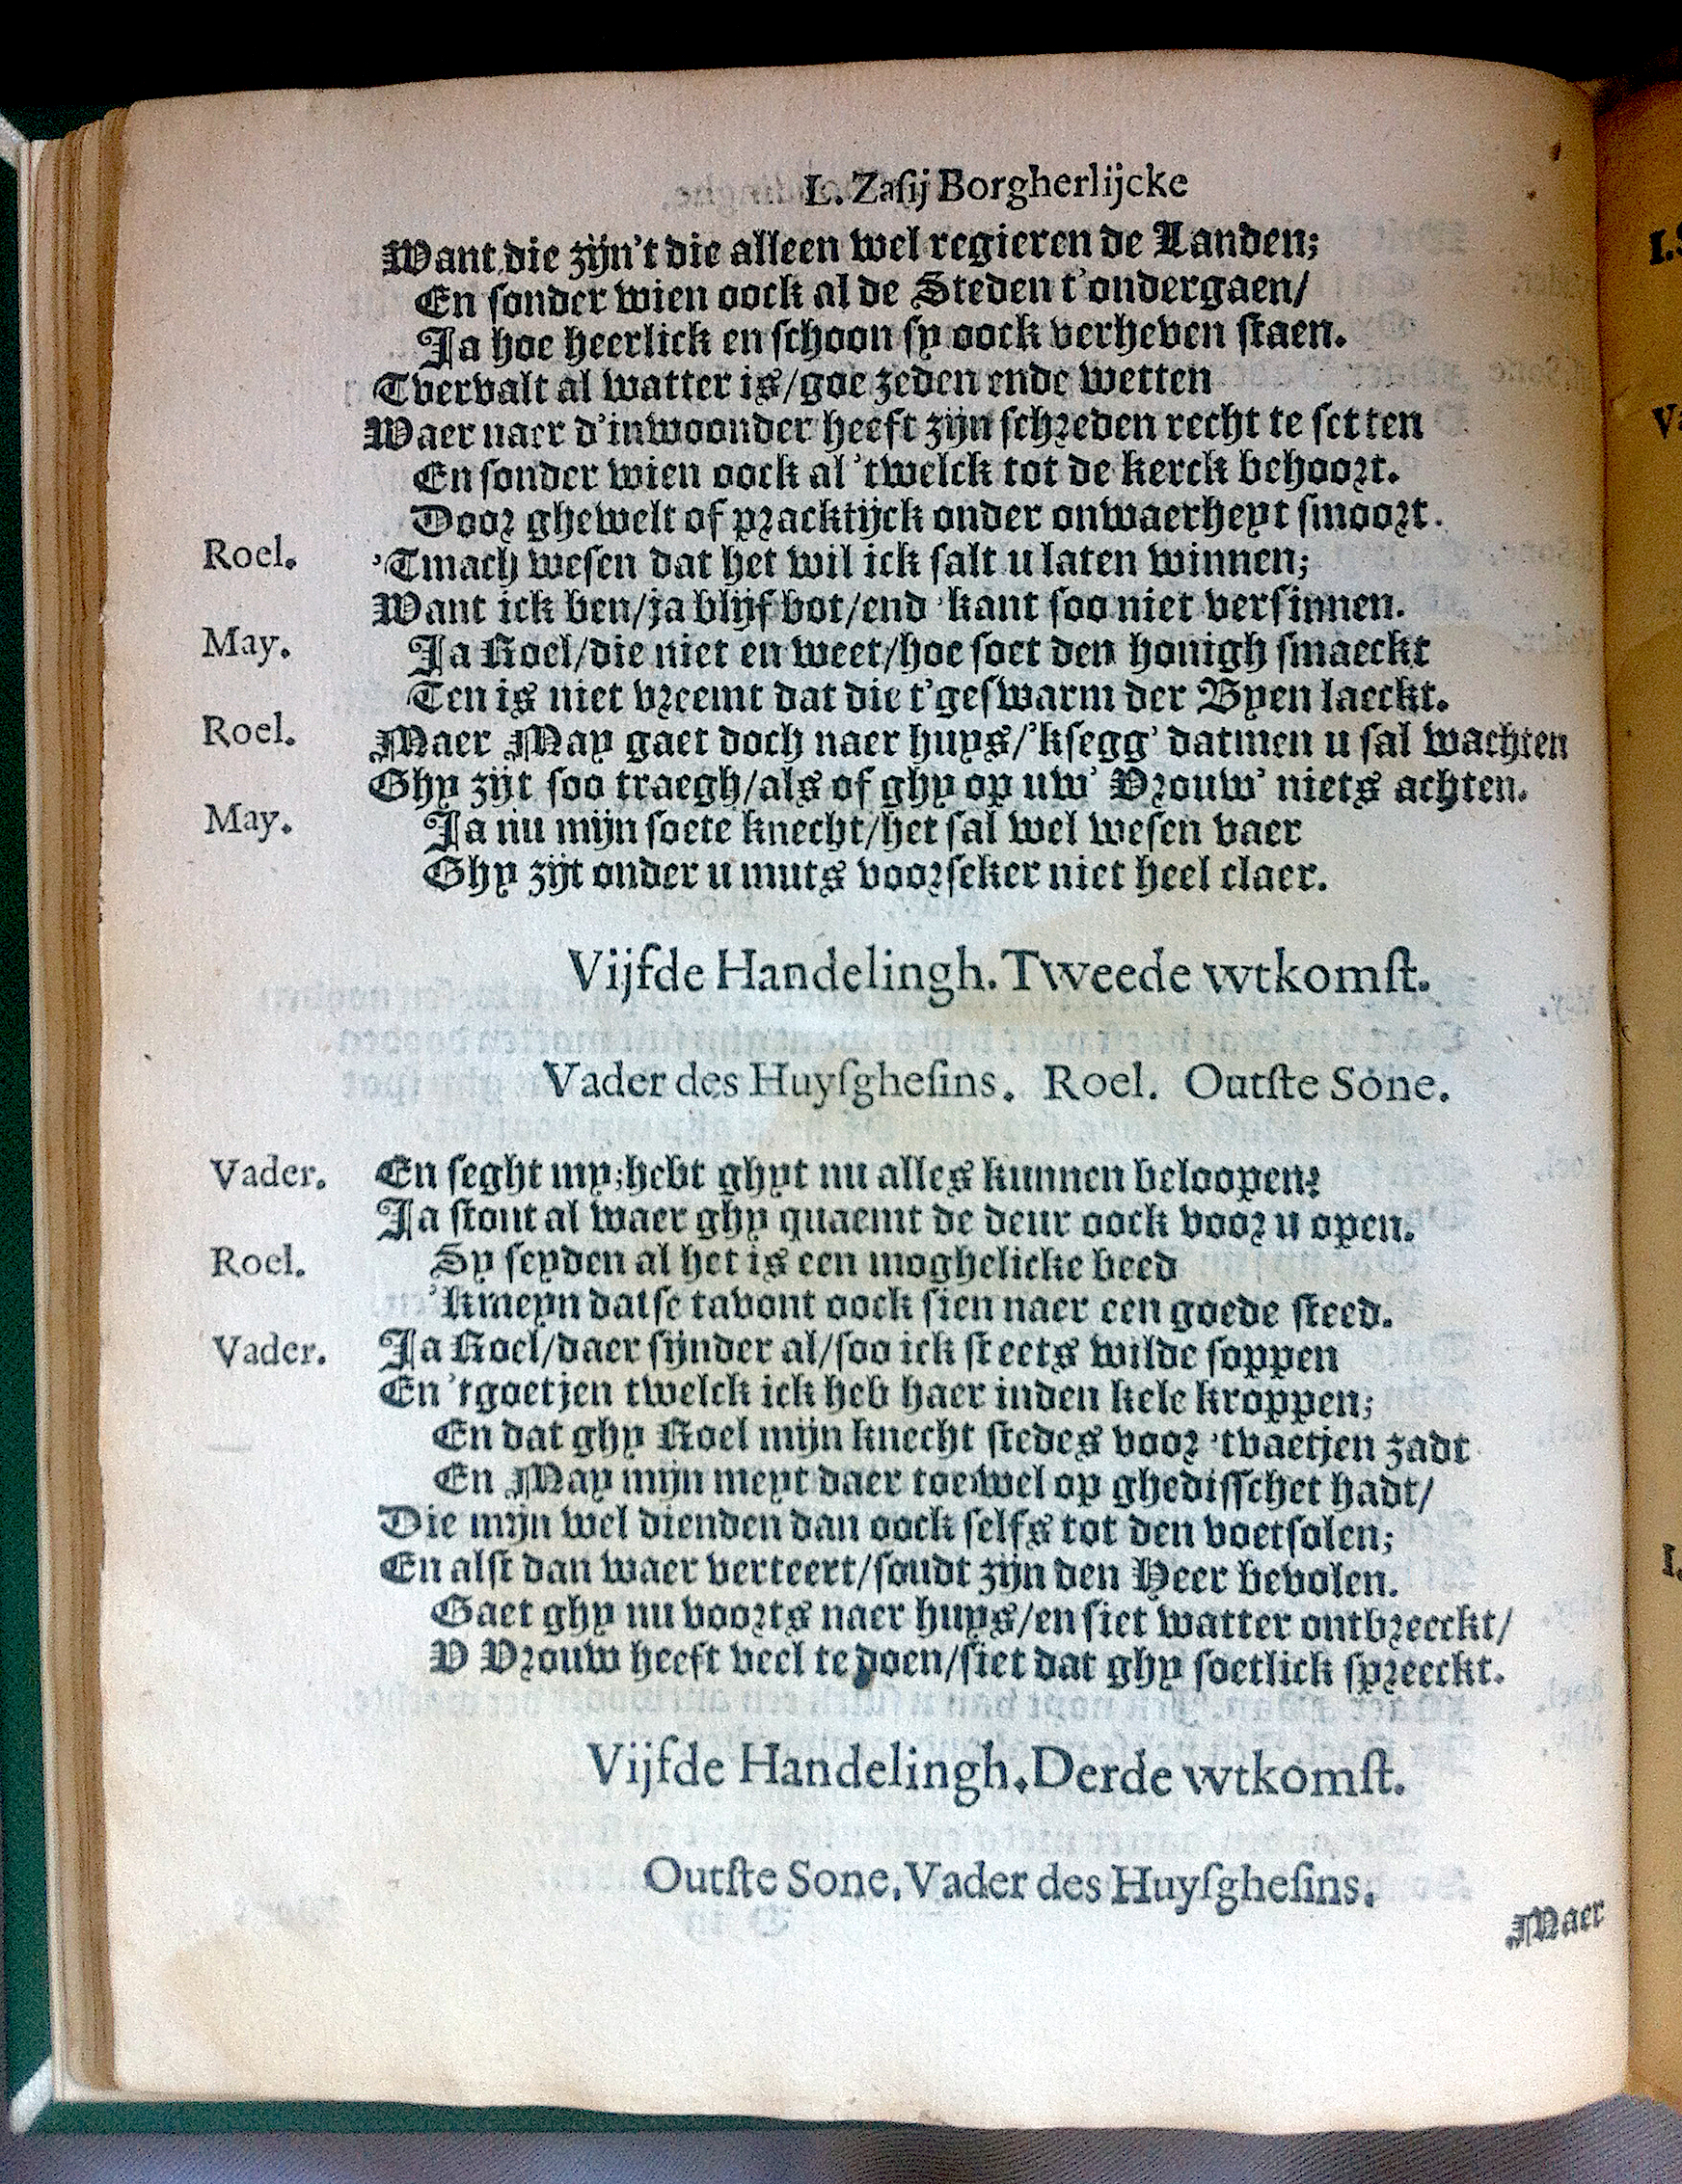 L. Zasij Borgherlijcke
Want die zijn't die alleen wel regieren de Landen;
En sonder wien oock al de Steden t'ondergaen/
Ja hoe heerlick en schoon sy oock verheven staen.
Tvervalt al watter is/goe zeden ende wetten
Waer naer d'inwoonder heeft zijn schreden recht te setten
En sonder wien oock al 'twelck tot de kerck behoort.
Door ghewelt of pracktijck onder onwaerheyt smoort.
Roel. 'Tmach wesen dat het wil ick salt u laten winnen;
Want ick ben/ja blijf bot/end 'kant soo niet versinnen.
May. Ja Roel/die niet en weet/hoe soet den honigh smaeckt
Ten is niet vreemt dat die t'geswarm der Byen laeckt.
Roel. Maer May gaet doch naer huys/'ksegg' datmen u sal wachten
Ghy zijt soo traegh/als of ghy op uw' Vrouw' niets achten.
May. Ja nu mijn soete knecht/het sal wel wesen vaer
Ghy zijt onder u muts voorseker niet heel claer.
Vijfde Handelingh. Tweede wtkomst.
Vader des Huysghesins. Roel. Outste Sone.
Vader. En seght my;hebt ghyt nu alles kunnen beloopen?
Ja stont al waer ghy quaemt de deur oock voor u open.
Roel. Sy seyden al het is een moghelicke beed
'kmeyn datse tavont oock sien naer een goede steed.
Vader. Ja Roel/daer sijnder al/soo ick steets wilde soppen
En 'tgoetjen twelck ick heb haer inden kele kroppen;
En dat ghy Roel mijn knecht stedes voor 'tvaetjen zadt
En May mijn meyt daer toe wel op ghedisschet hadt/
Die mijn wel dienden dan oock selfs tot den voetsolen;
En alst dan waer verteert/soudt zijn den Heer bevolen.
Gaet ghy nu voorts naer huys/en siet watter ontbreeckt/
V Vrouw heeft veel te doen/siet dat ghy soetlick spreeckt.
Vijfde Handelingh. Derde wtkomst.
Outste Sone. Vader des Huysghesins.
Maer